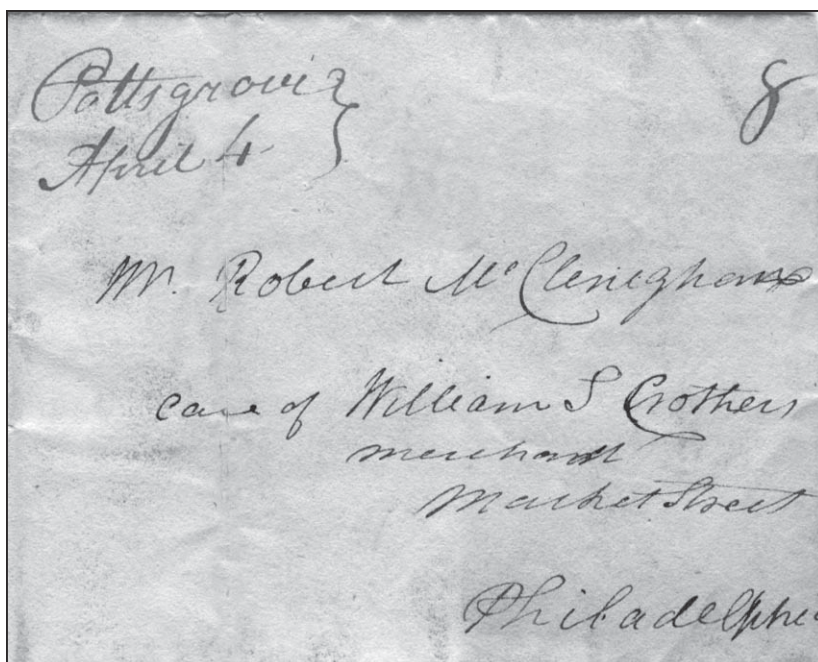 Pottsgrove } 8
April 4
Mr. Robert McCleneghan
care of William S Crothers
merchant
Market Street
Philadelphi